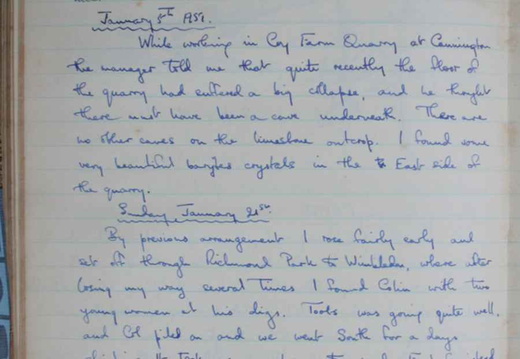 January 5th 1951.
While working in Coy Farm Quarry at Cannington
the manager told me that quite recently the floor of
the quarry had entered a big collapse, and he thought
there must have been a cave underneath. There are
no other caves on the limestone outcrop. I found some
very beautiful barytes crystals in the East side of
the quarry.
Sunday January 21st.
By previous arrangement I rose fairly early and
set off through Richmond Park to Wimbledon, where after
losing my way several times I found Colin with two
young women at his digs. Tools was going quite well,
and Col piled on and we went South for a days